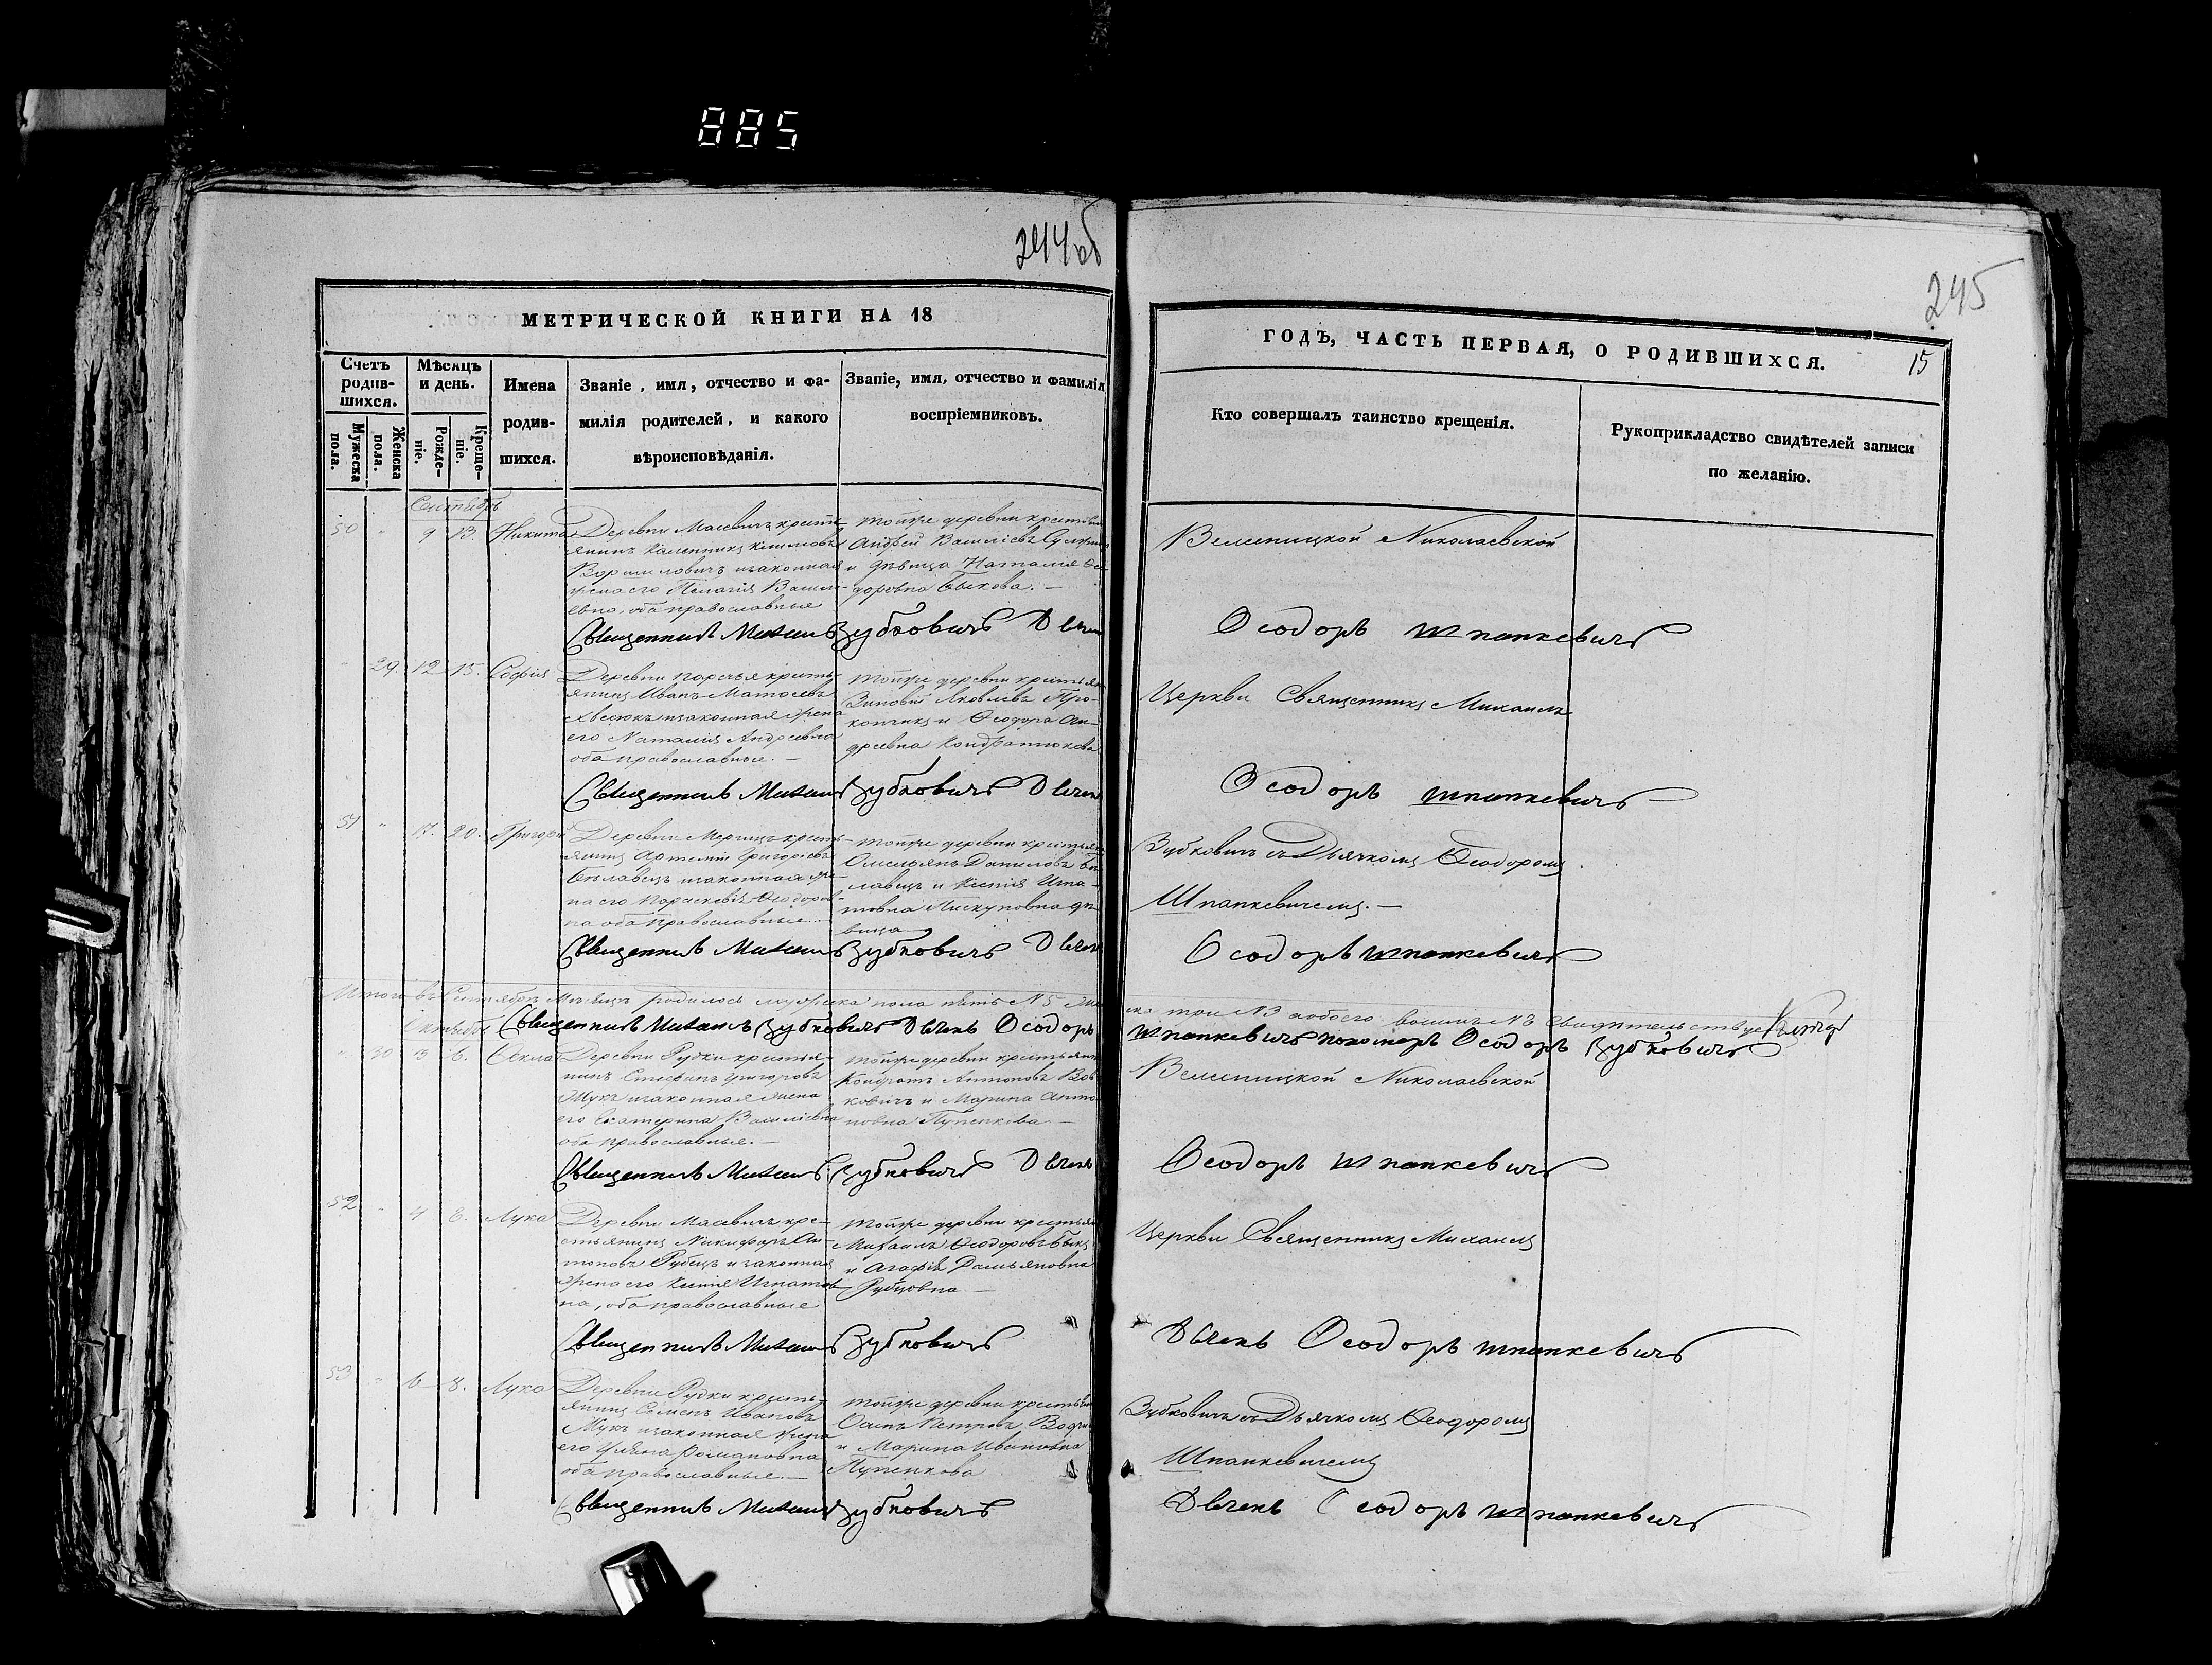 885
244об
МЕТРИЧЕСКОЙ КНИГИ НА 18
Счетъ родив-шихся.
Мѣсяцъ и день.
Имена родив-шихся.
Званіе, имя, отчество и фа-
милія родителей, и какого
вѣроисповѣданія.
Званіе, имя, отчество и фамилія
воспріемниковъ.
Мужеска пола.
Женска пола.
Рожде-ніе.
Креще-ніе.
Сентябрь
50 " 9 13. Никита
Деревни Масевичъ кресть-
янинъ Калинникъ Климовъ
и законная
жена его Пелагія Васил-
евна, оба православные
тойже деревни крестьян
Андрей Василіевъ
и дѣвица Наталія Ѳео-
доровна Быкова. —
Священникъ Михаилъ Зубковичъ Дьячекъ
" 29. 12 15. Софія
Деревни Поречья кресть-
янинъ Иванъ Матѳеевъ
Хвесюкъ и законная жена
его Наталія Андреевна
оба православные. —
тойже деревни крестьян
Зиновій Яковлевъ Про-
копчикъ и Ѳеодора Ан-
дреевна Кондратюкова
Священникъ Михаилъ Зубковичъ Дьячекъ
51 " 17. 20. Григорій
Деревни кресть-
янинъ Артемій Григорьевъ
Бѣлавецъ и законная же-
на его Параскевія Ѳеодоров-
на оба православные. —
тойже деревни крестьян
Омельянъ Даниловъ Бѣ-
лавецъ и Ксенія Игна-
товна Пискуновна дѣ-
вица
Священникъ Михаилъ Зубковичъ Дьячекъ
Итого въ Сентябрѣ Мѣсяцѣ родилось мужеска пола пять №5 жен
Октябрь Священникъ Михаилъ Зубковичъ Дьячекъ Ѳеодоръ
" 30 3 6. Ѳекла
Деревни Рудки крестья-
нинъ Стефанъ Григоровъ
Жукъ и законная жена
его Екатерина Василіевна
оба православные. —
тойже деревни крестьянин
Кондратъ Антоновъ Вов
ковичъ и Марина Анто
новна Пупенкова —
Священникъ Михаилъ Зубковичъ Дьячекъ
52 " 4 8. Лука
Деревни Масевичъ кре-
стьянинъ Никифоръ Ан-
тоновъ Рубецъ и законная
жена его Ксенія Игнатов-
на, оба православные
тойже деревни крестьян
Михаилъ Ѳеодоровъ Быкъ
и Агафія Дамьяновна
Рубцовна —
Священникъ Михаилъ Зубковичъ
53 " 6 8. Лука
Деревни Рудки кресть-
янинъ Семенъ Ивановъ
Жукъ и законная жена
его Уліана Романовна
оба православные. —
тойже деревни крестьян
Осипъ Петровъ
и Марина Ивановна
Пупенкова
Священникъ Михаилъ Зубковичъ
245
ГОДЪ, ЧАСТЬ ПЕРВАЯ, О РОДИВШИХСЯ.
15
Кто совершалъ таинство крещенія.
Рукоприкладство свидѣтелей записи
по желанію.
Велесницкой Николаевской
Ѳеодоръ Шпанкевичъ
Церкви Священникъ Михаилъ
Ѳеодоръ Шпанкевичъ
Зубковичъ съ Дьячкомъ Ѳеодоромъ
Шпанкевичемъ. —
Ѳеодоръ Шпанкевичъ
ска три №3 а обоего восемь №8 Свидѣтельствуетъ
Шпанкевичъ пономарь Ѳеодоръ Зубковичъ
Велесницкой Николаевской
Ѳеодоръ Шпанкевичъ
Церкви Священникъ Михаилъ
Дьячекъ Ѳеодоръ Шпанкевичъ
Зубковичъ съ Дьячкомъ Ѳеодоромъ
Шпанкевичемъ
Дьячекъ Ѳеодоръ Шпанкевичъ